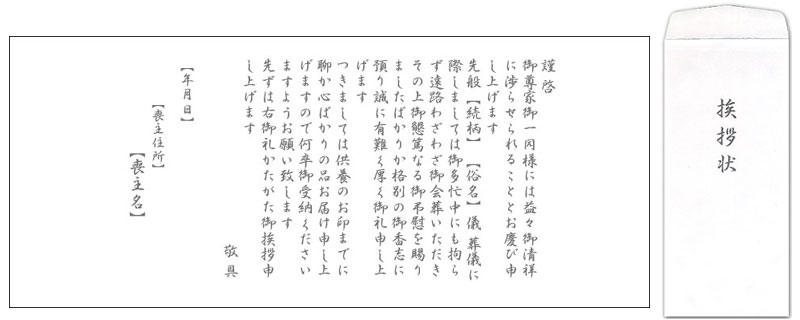 挨拶状
謹啓
御尊家御一同様には益々御清祥
に渉らせられることとお慶び申
し上げます
先般【続柄】【俗名】儀 葬儀に
際しましては御多忙中にも拘ら
ず遠路わざわざ御会葬いただき
その上御懇篤なる御弔慰を賜り
ましたばかりか格別の御香志に
預り誠に有難く厚く御礼申し上
げます
つきましては供養のお印までに
聊か心ばかりの品お届け申し上
げますので何卒御受納ください
ますようお願い致します
先ずは右御礼かたがた御挨拶申
し上げます
敬具
【年月日】
【喪主住所】
【喪主名】